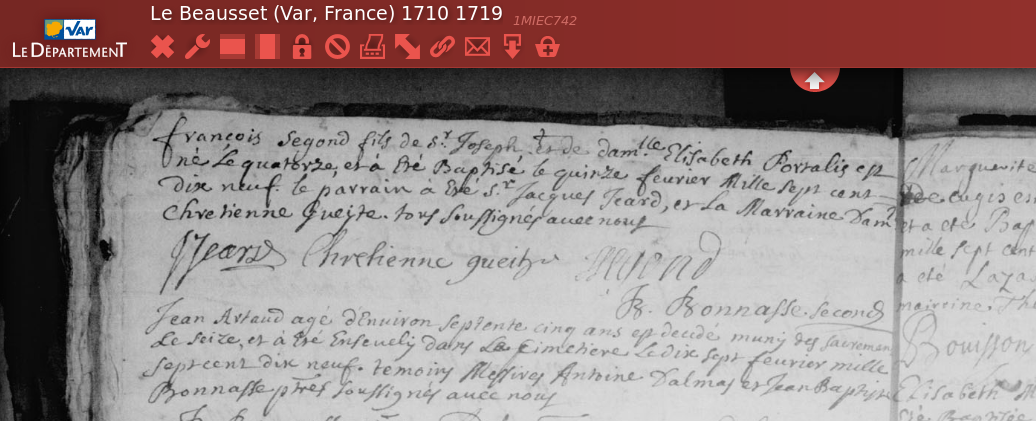 Le Beausset (Var, France) 1710 1719
1MIEC742
VAR
LE DÉPARTEMENT
francois Segond fils de Sr. Joseph et de damlle Elisabeth Portalis est
né Le quatorze, et à Eté Baptisé le quinze fevrier Mille sept cent
dix neuf. le parrain à Eté Sr. Jacques Jeard, et La Marraine Dam
Chretienne Gueite. tous soussignés avec nous
JJeard Chretienne gueite Segond
B. Bonnasse. second
Jean Artaud agé d'Environ septente cinq ans est decidé muny des sacremen
Le seize, et à Eté Ensevely dans Le Cimetiere Le dix sept fevrier mille
sept cent dix neuf. temoins Messires Antoine Dalmas et Jean Baptiste
Bonnasse ptres soussignés avec nous
Marguerite
et a eté Bap
mille sept cent
a eté Laza
marreine. Th
Bouisson
Elisabeth M